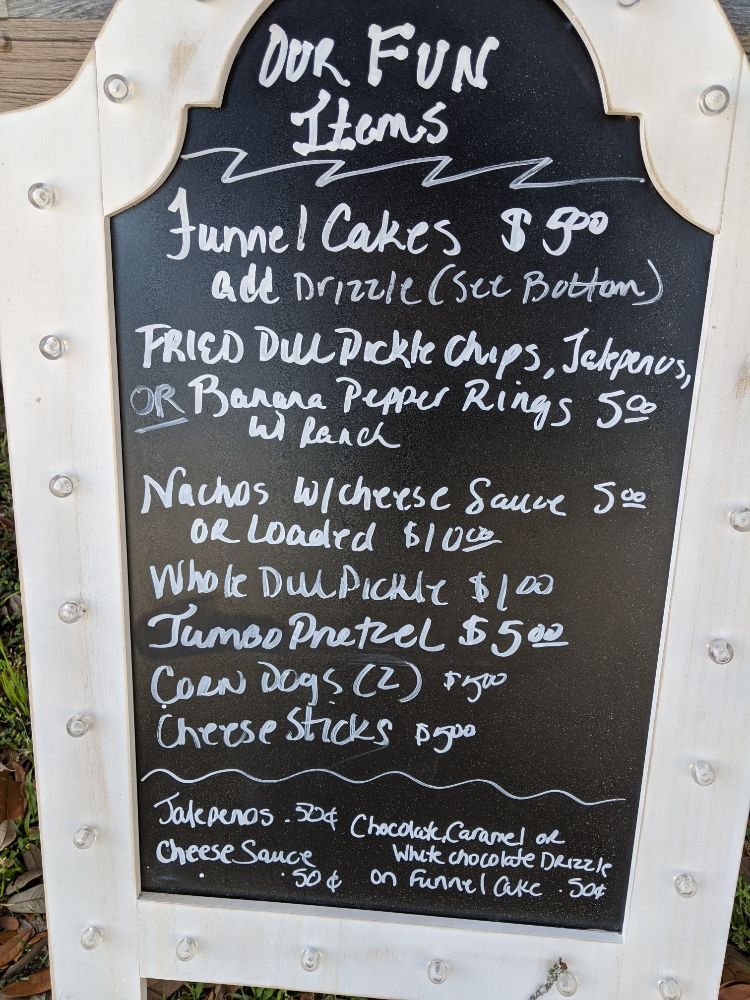 OUR FUN
Items
Funnel Cakes $5.00
add Drizzle (See Bottom)
FRIED Dill Pickle Chips, Jalepenos,
OR Banana Pepper Rings 5.00
w/ Ranch
Nachos w/cheese Sauce 5.00
OR Loaded $10.00
Whole Dill Pickle $1.00
Jumbo Pretzel $5.00
CORN Dogs (2) $5.00
Cheese Sticks $5.00
Jalepenos .50¢
Cheese Sauce
.50¢
Chocolate, Caramel or
White chocolate Drizzle
on Funnel Cake .50¢